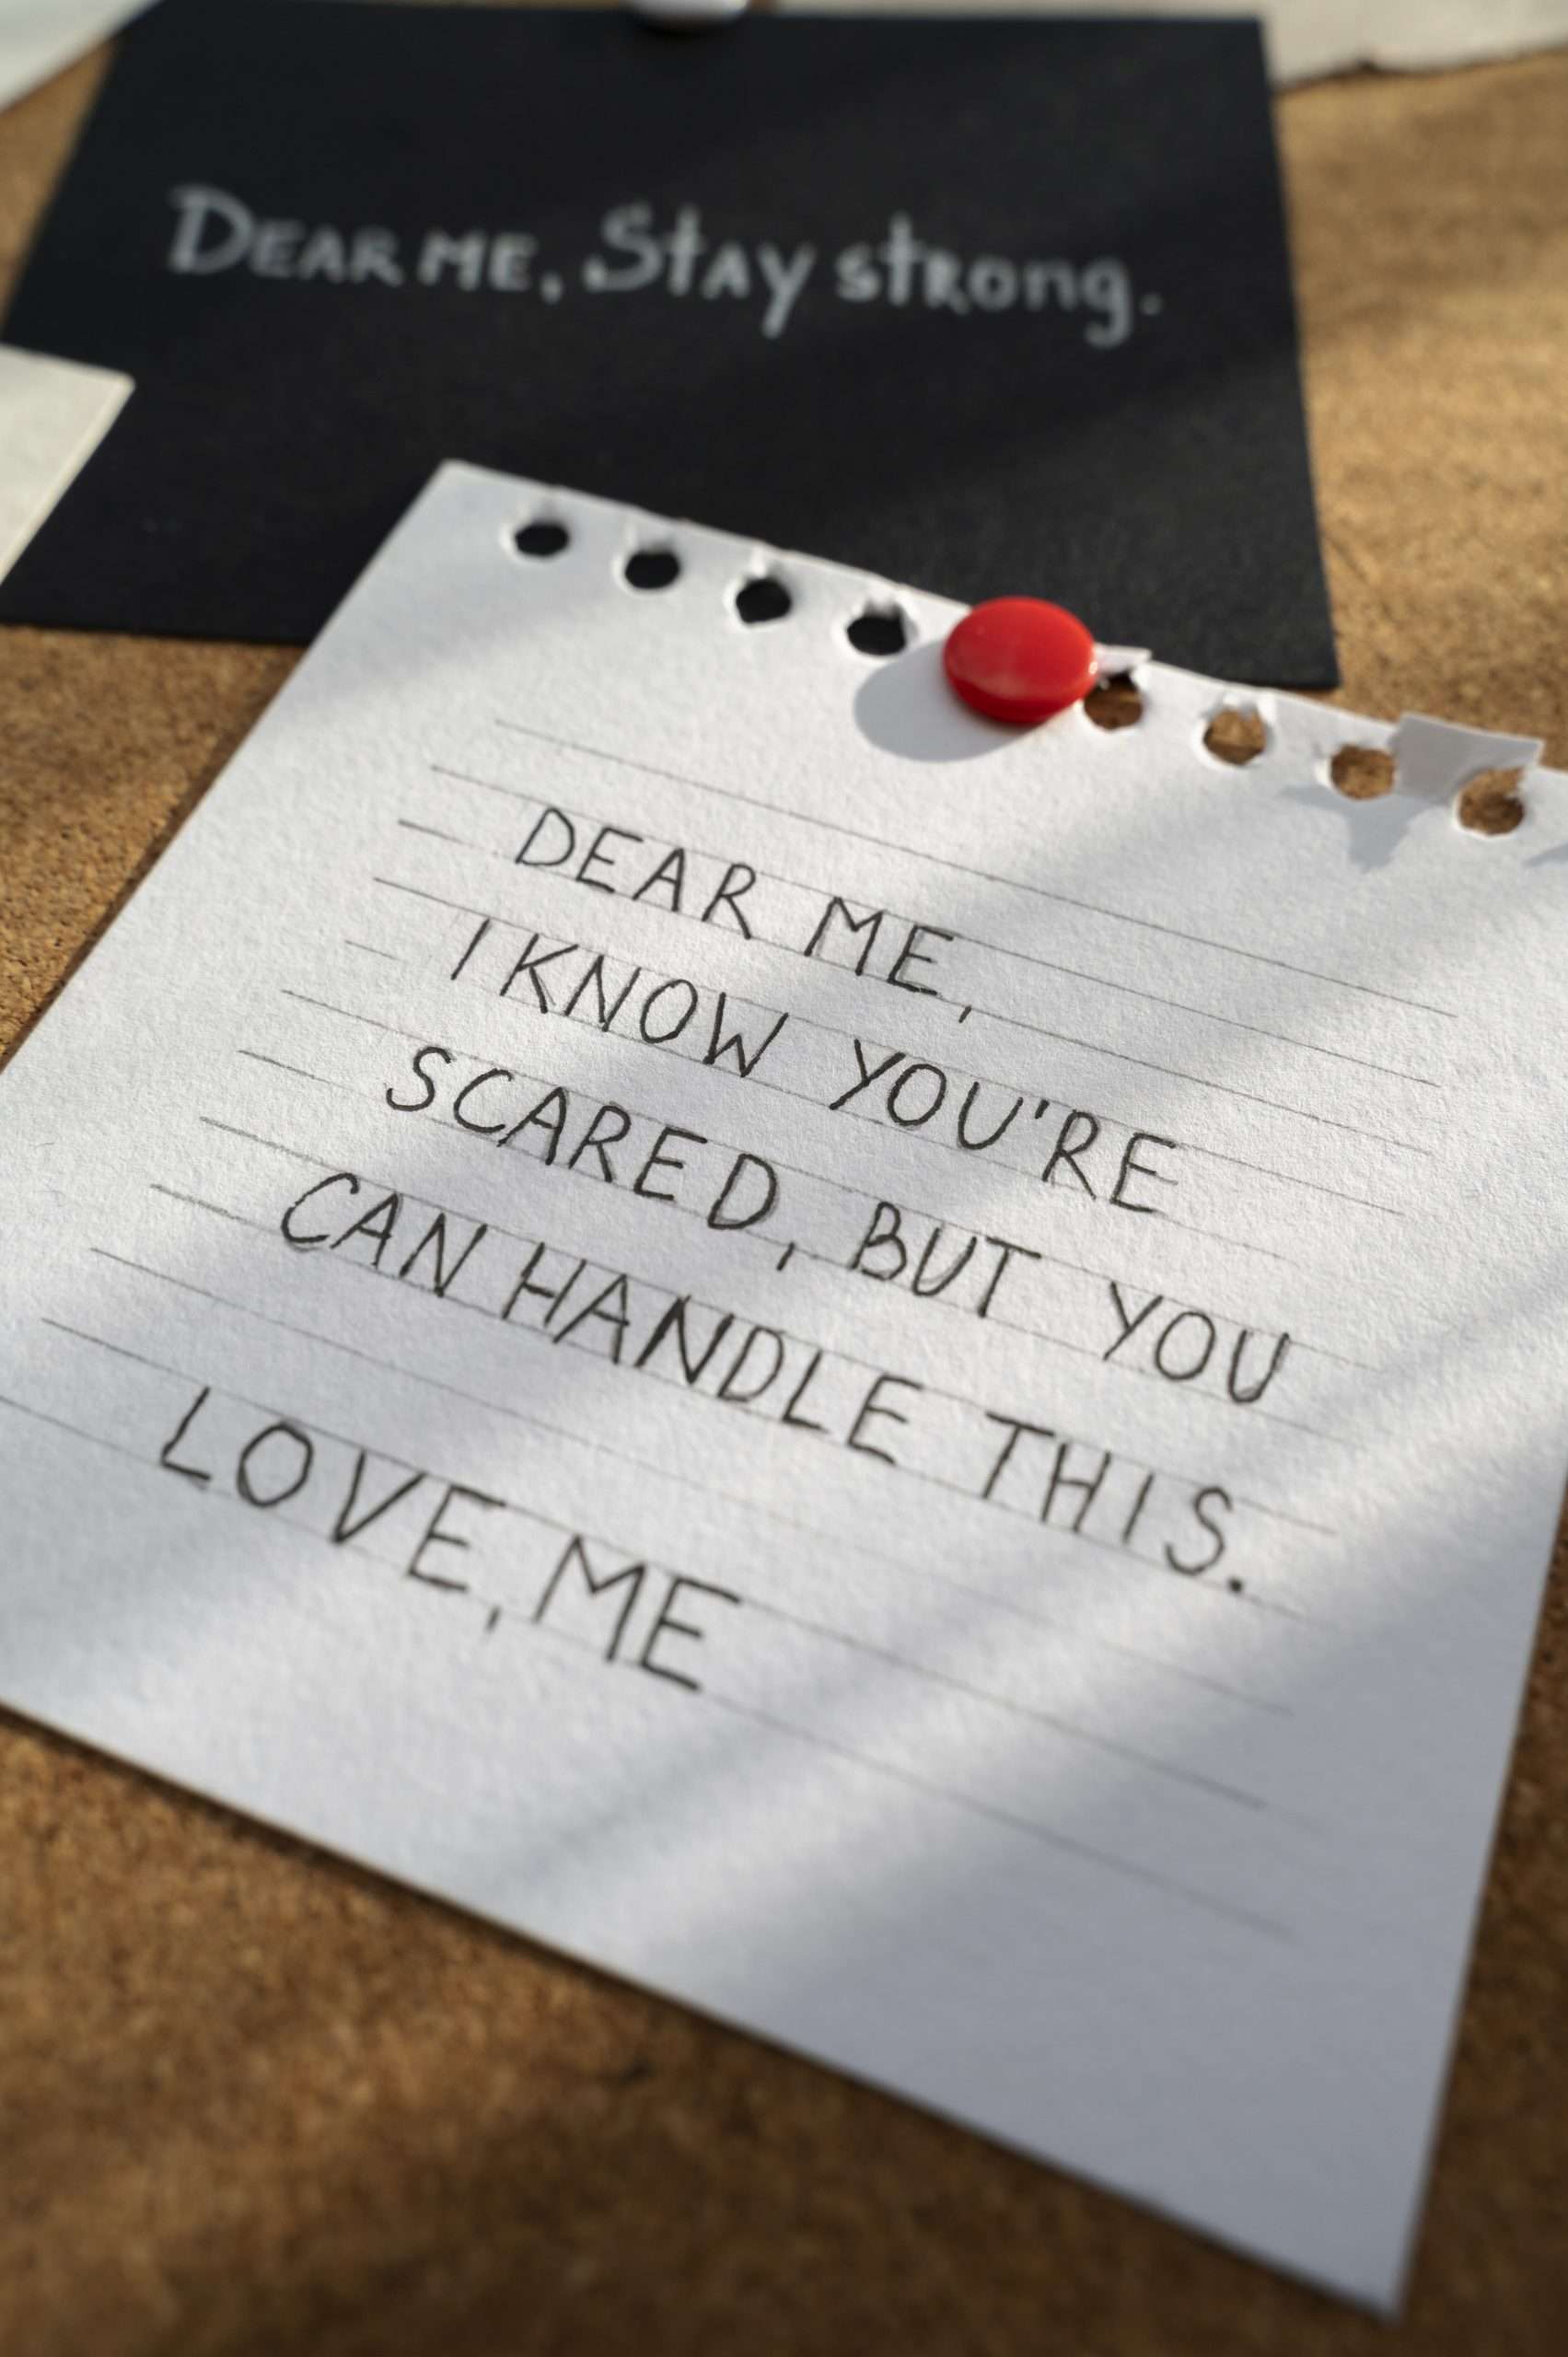 DEAR ME, Stay strong.
DEAR ME,
I KNOW YOU'RE
SCARED, BUT YOU
CAN HANDLE THIS.
LOVE, ME